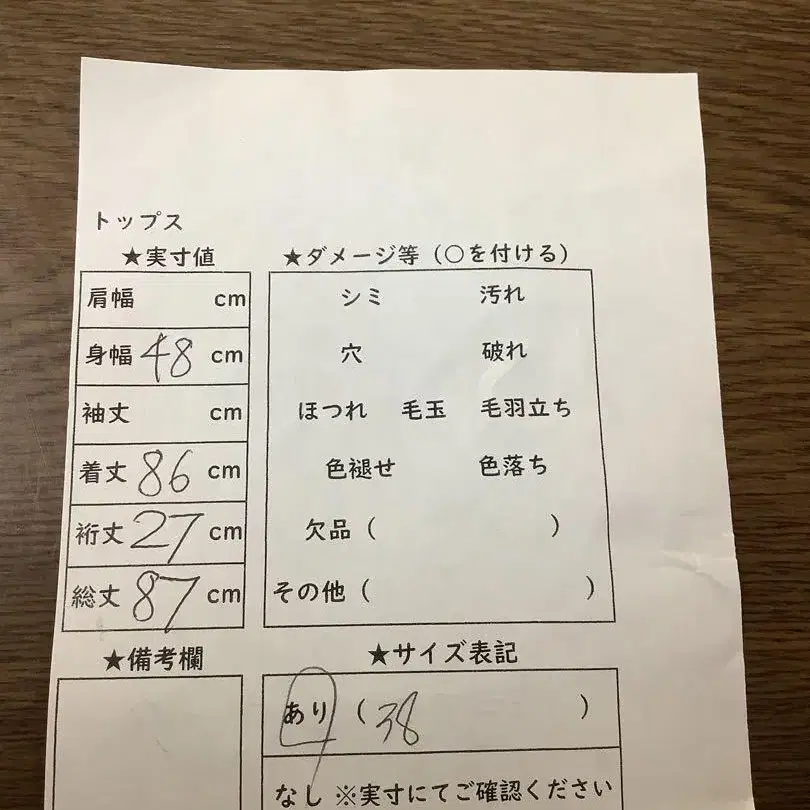 トップス
★実寸値
肩幅 cm
身幅 48 cm
袖丈 cm
着丈 86 cm
裄丈 27 cm
総丈 87 cm
★ダメージ等（○を付ける）
シミ 汚れ
穴 破れ
ほつれ 毛玉 毛羽立ち
色褪せ 色落ち
欠品（ ）
その他（ ）
★備考欄
★サイズ表記
あり （38 ）
なし ※実寸にてご確認ください